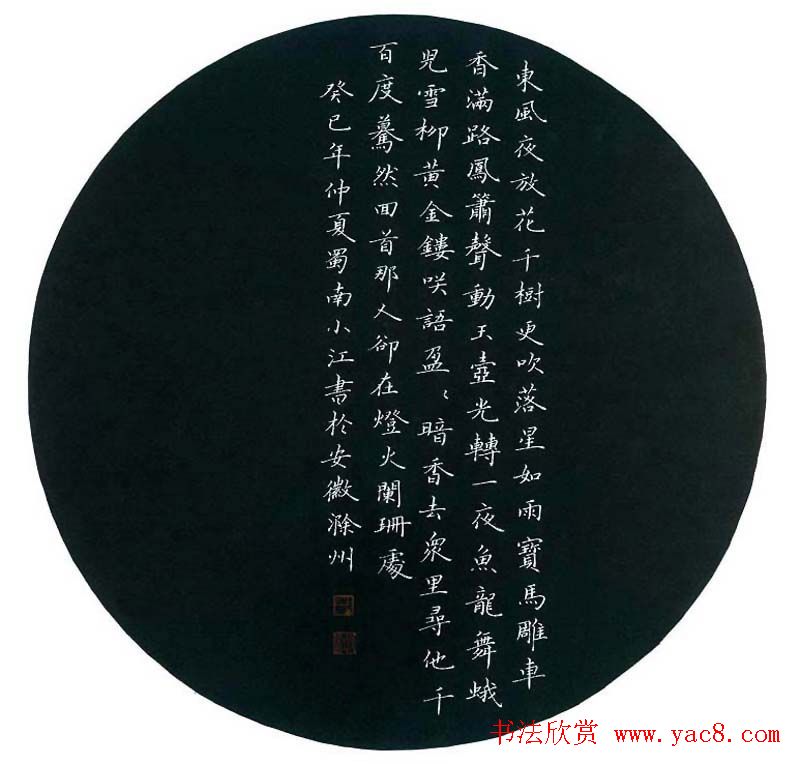 東風夜放花千樹更吹落星如雨寶馬雕車
香滿路鳳簫聲動玉壺光轉一夜魚龍舞蛾
兒雪柳黃金鏤咲語盈〻暗香去衆里尋他千
百度驀然回首那人卻在燈火闌珊處
癸巳年仲夏蜀南小江書於安徽滁州
书法欣赏 www.yac8.com